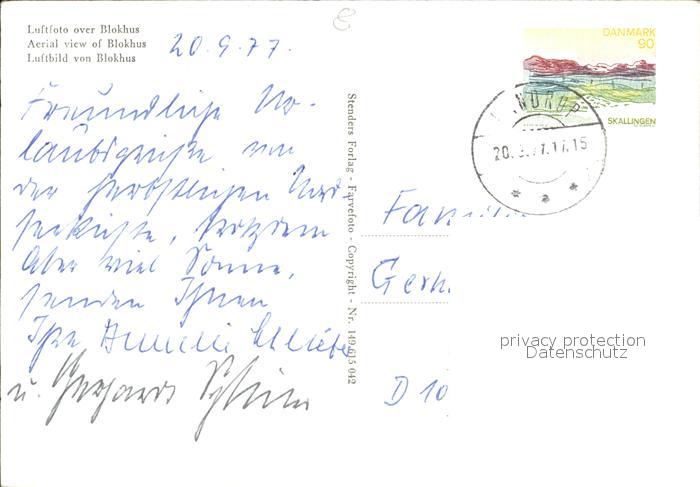 Luftfoto over Blokhus
Aerial view of Blokhus
Luftbild von Blokhus
20.9.77.
Freundliche Ur-
laubsgrüße von
der herbstlichen Nord
seeküste, trotzdem
Aber viel Sonne,
senden Ihnen
Ihre
u. Gerhard
Stenders Forlag - Farvefoto - Copyright - Nr. 149 615 042
DANMARK
90
SKALLINGEN
20.9.77.17.15
Fam
Gerh.
D 10
privacy protection
Datenschutz